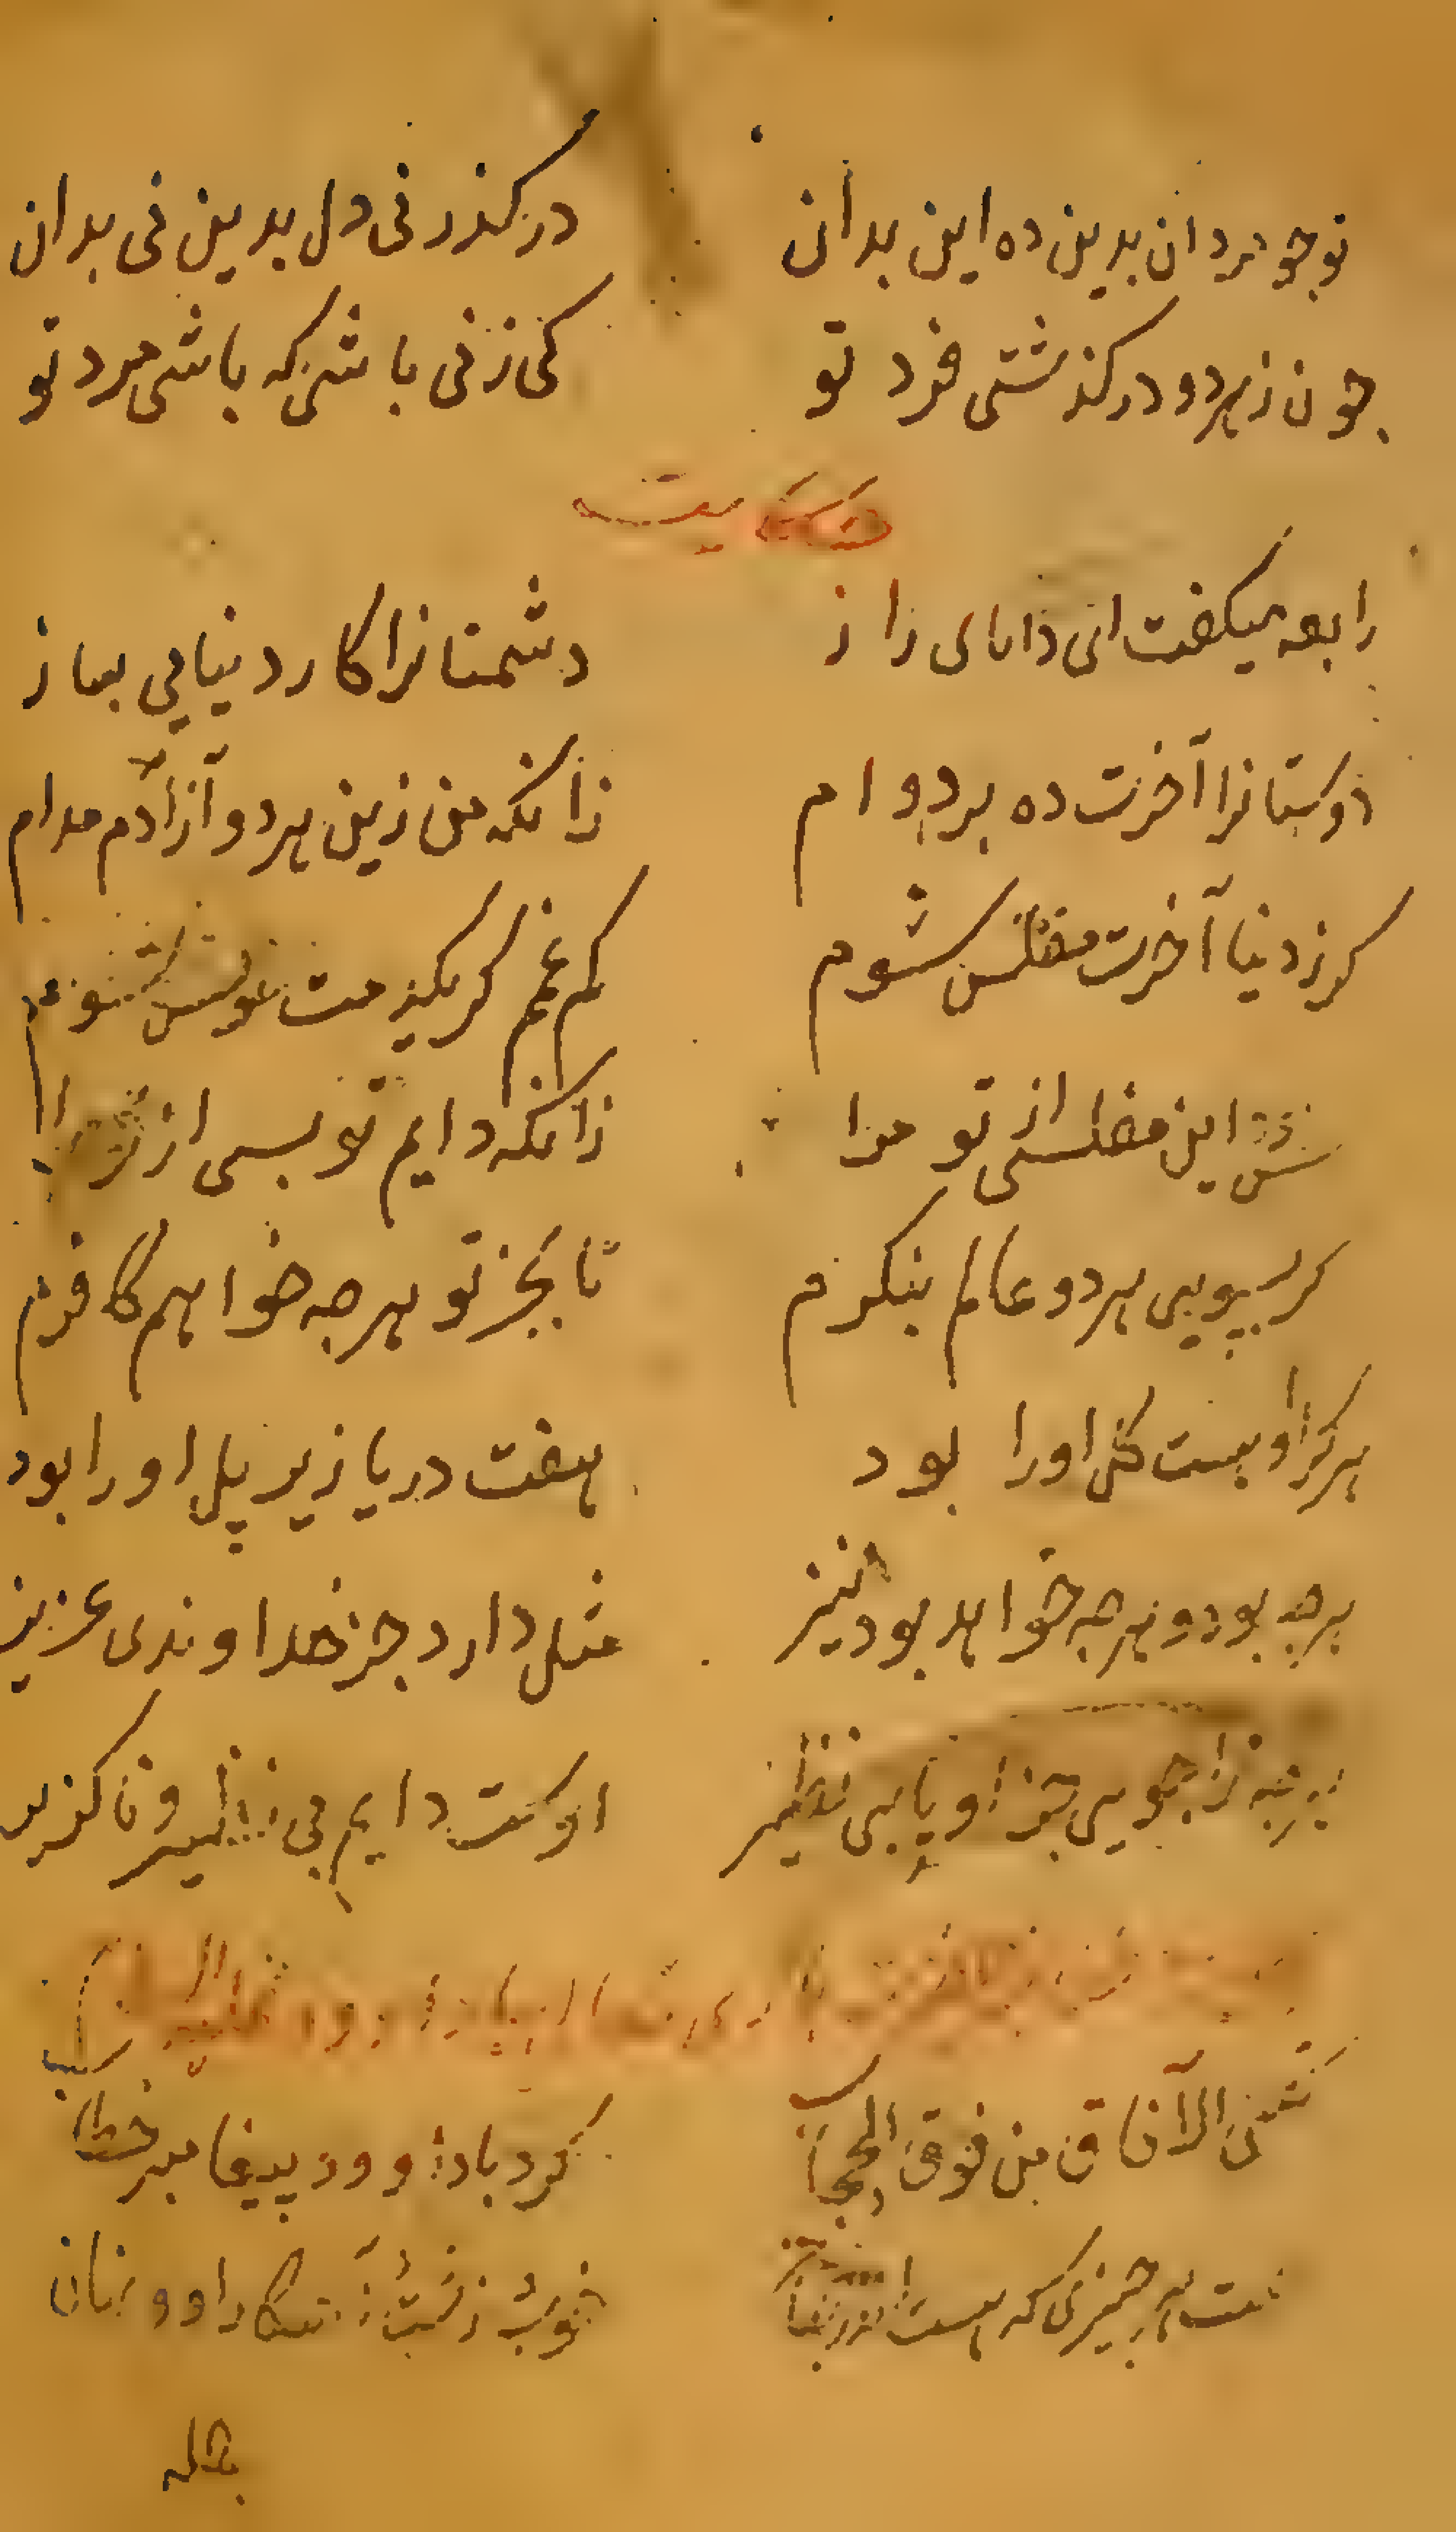 تو جو مردان بدین ده این بدان در کذر نی دل بدین نی بدان
جون ز هر دو در کذشتی فرد تو کی زنی باشی که باشی مرد تو
حکایت
رابعه میکفت ای دانای راز دشمنانرا کار دنیایی بساز
دوستانرا آخرت ده بر دوام زانکه من زین هر دو آزادم مدام
کر ز دنیا آخرت مفلس شوم کم غم کر یکدمت مونس شوم
این مفلسی از تو مرا زانکه دایم تو بسی از تو مرا
کر بسویی هر دو عالم بنکرم تا بجز تو هرجه خواهم کافرم
هرکرا او هست کل او را بود هفت دریا زیر پل او را بود
هرجه بود و هرجه خواهد بود نیز مثل دارد جز خداوندی عزیز
هرجه را جویی جز او یابی نظیر اوست دایم بی نظیر و ناکزیر
الآفاق من فوق الحجاب کرد با داوود پیغامبر خطاب
هر جیزی که هست اندر جهان خوب و زشت و آشکارا و نهان
جمله